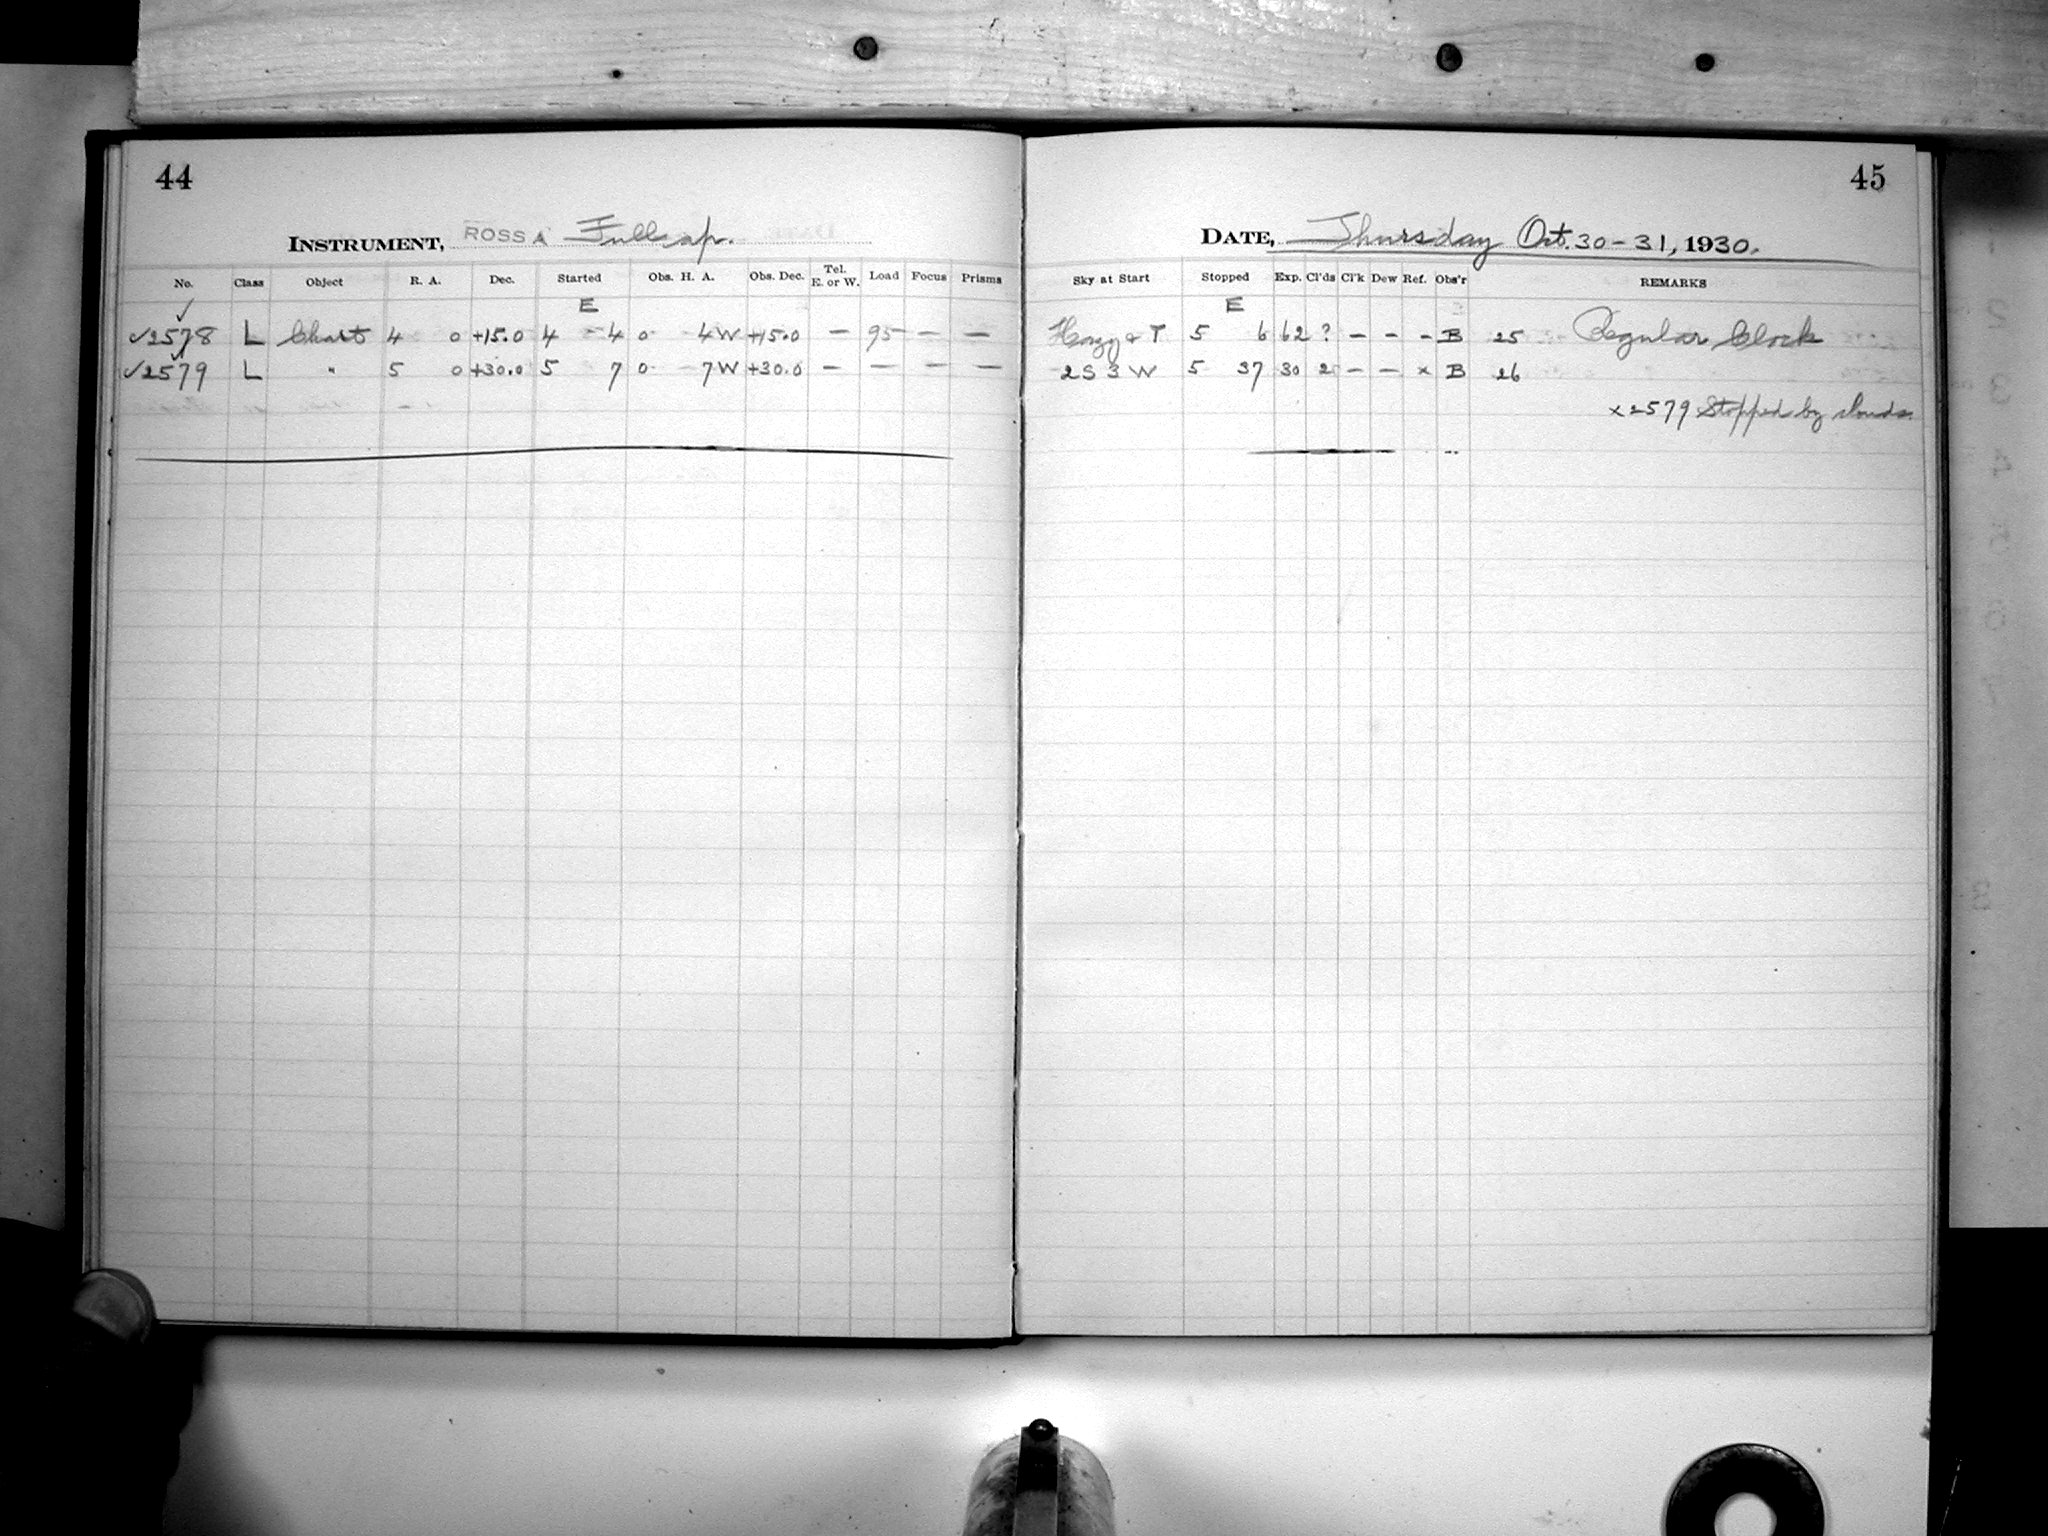 44
INSTRUMENT, ROSS A Full ap.
No. Class Object R. A. Dec. Started Obs. H. A. Obs. Dec. Tel. E. or W. Load Focus Prisms
E
✓2578 L Chart 4 0 +15.0 4 4 0 4W +15.0 — 95 — —
✓2579 L " 5 0 +30.0 5 7 0 7W +30.0 — — — —
45
DATE, Thursday Oct. 30-31, 1930.
Sky at Start Stopped Exp. Cl'ds Cl'k Dew Ref. Obs'r REMARKS
E
Hazy & T 5 6 62 ? — — - B 25 Regular Clock
2 S 3 W 5 37 30 2 — — × B 26
×2579 Stopped by clouds.